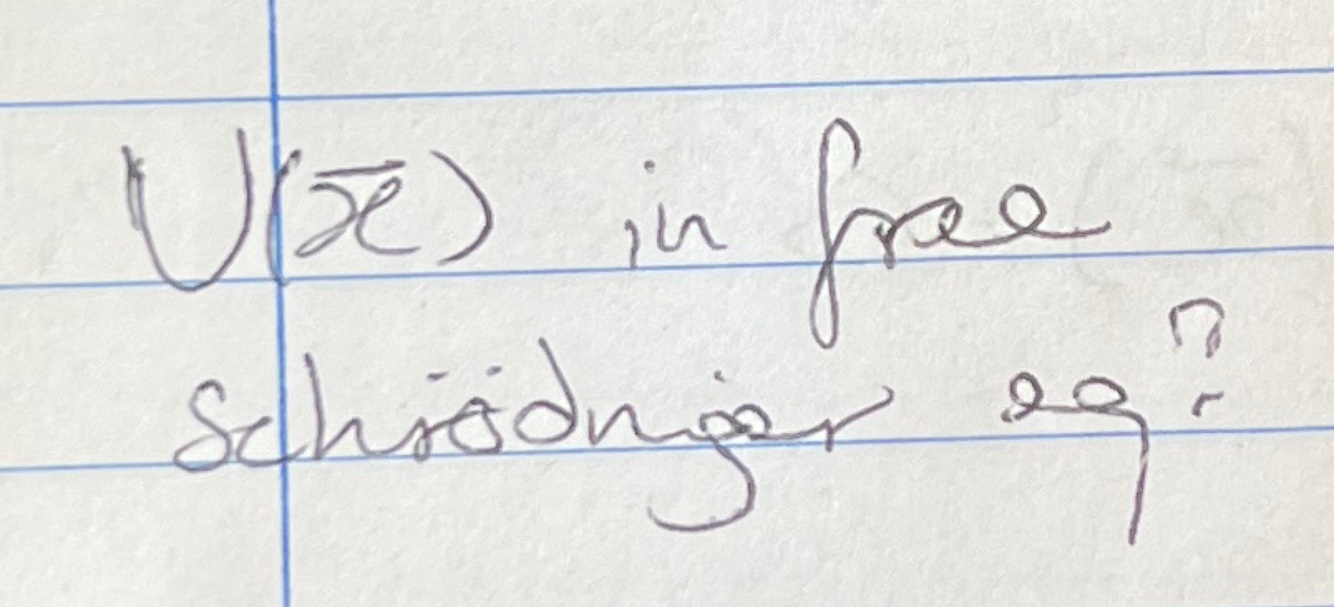 U(x̄) in free
Schrödinger eq?